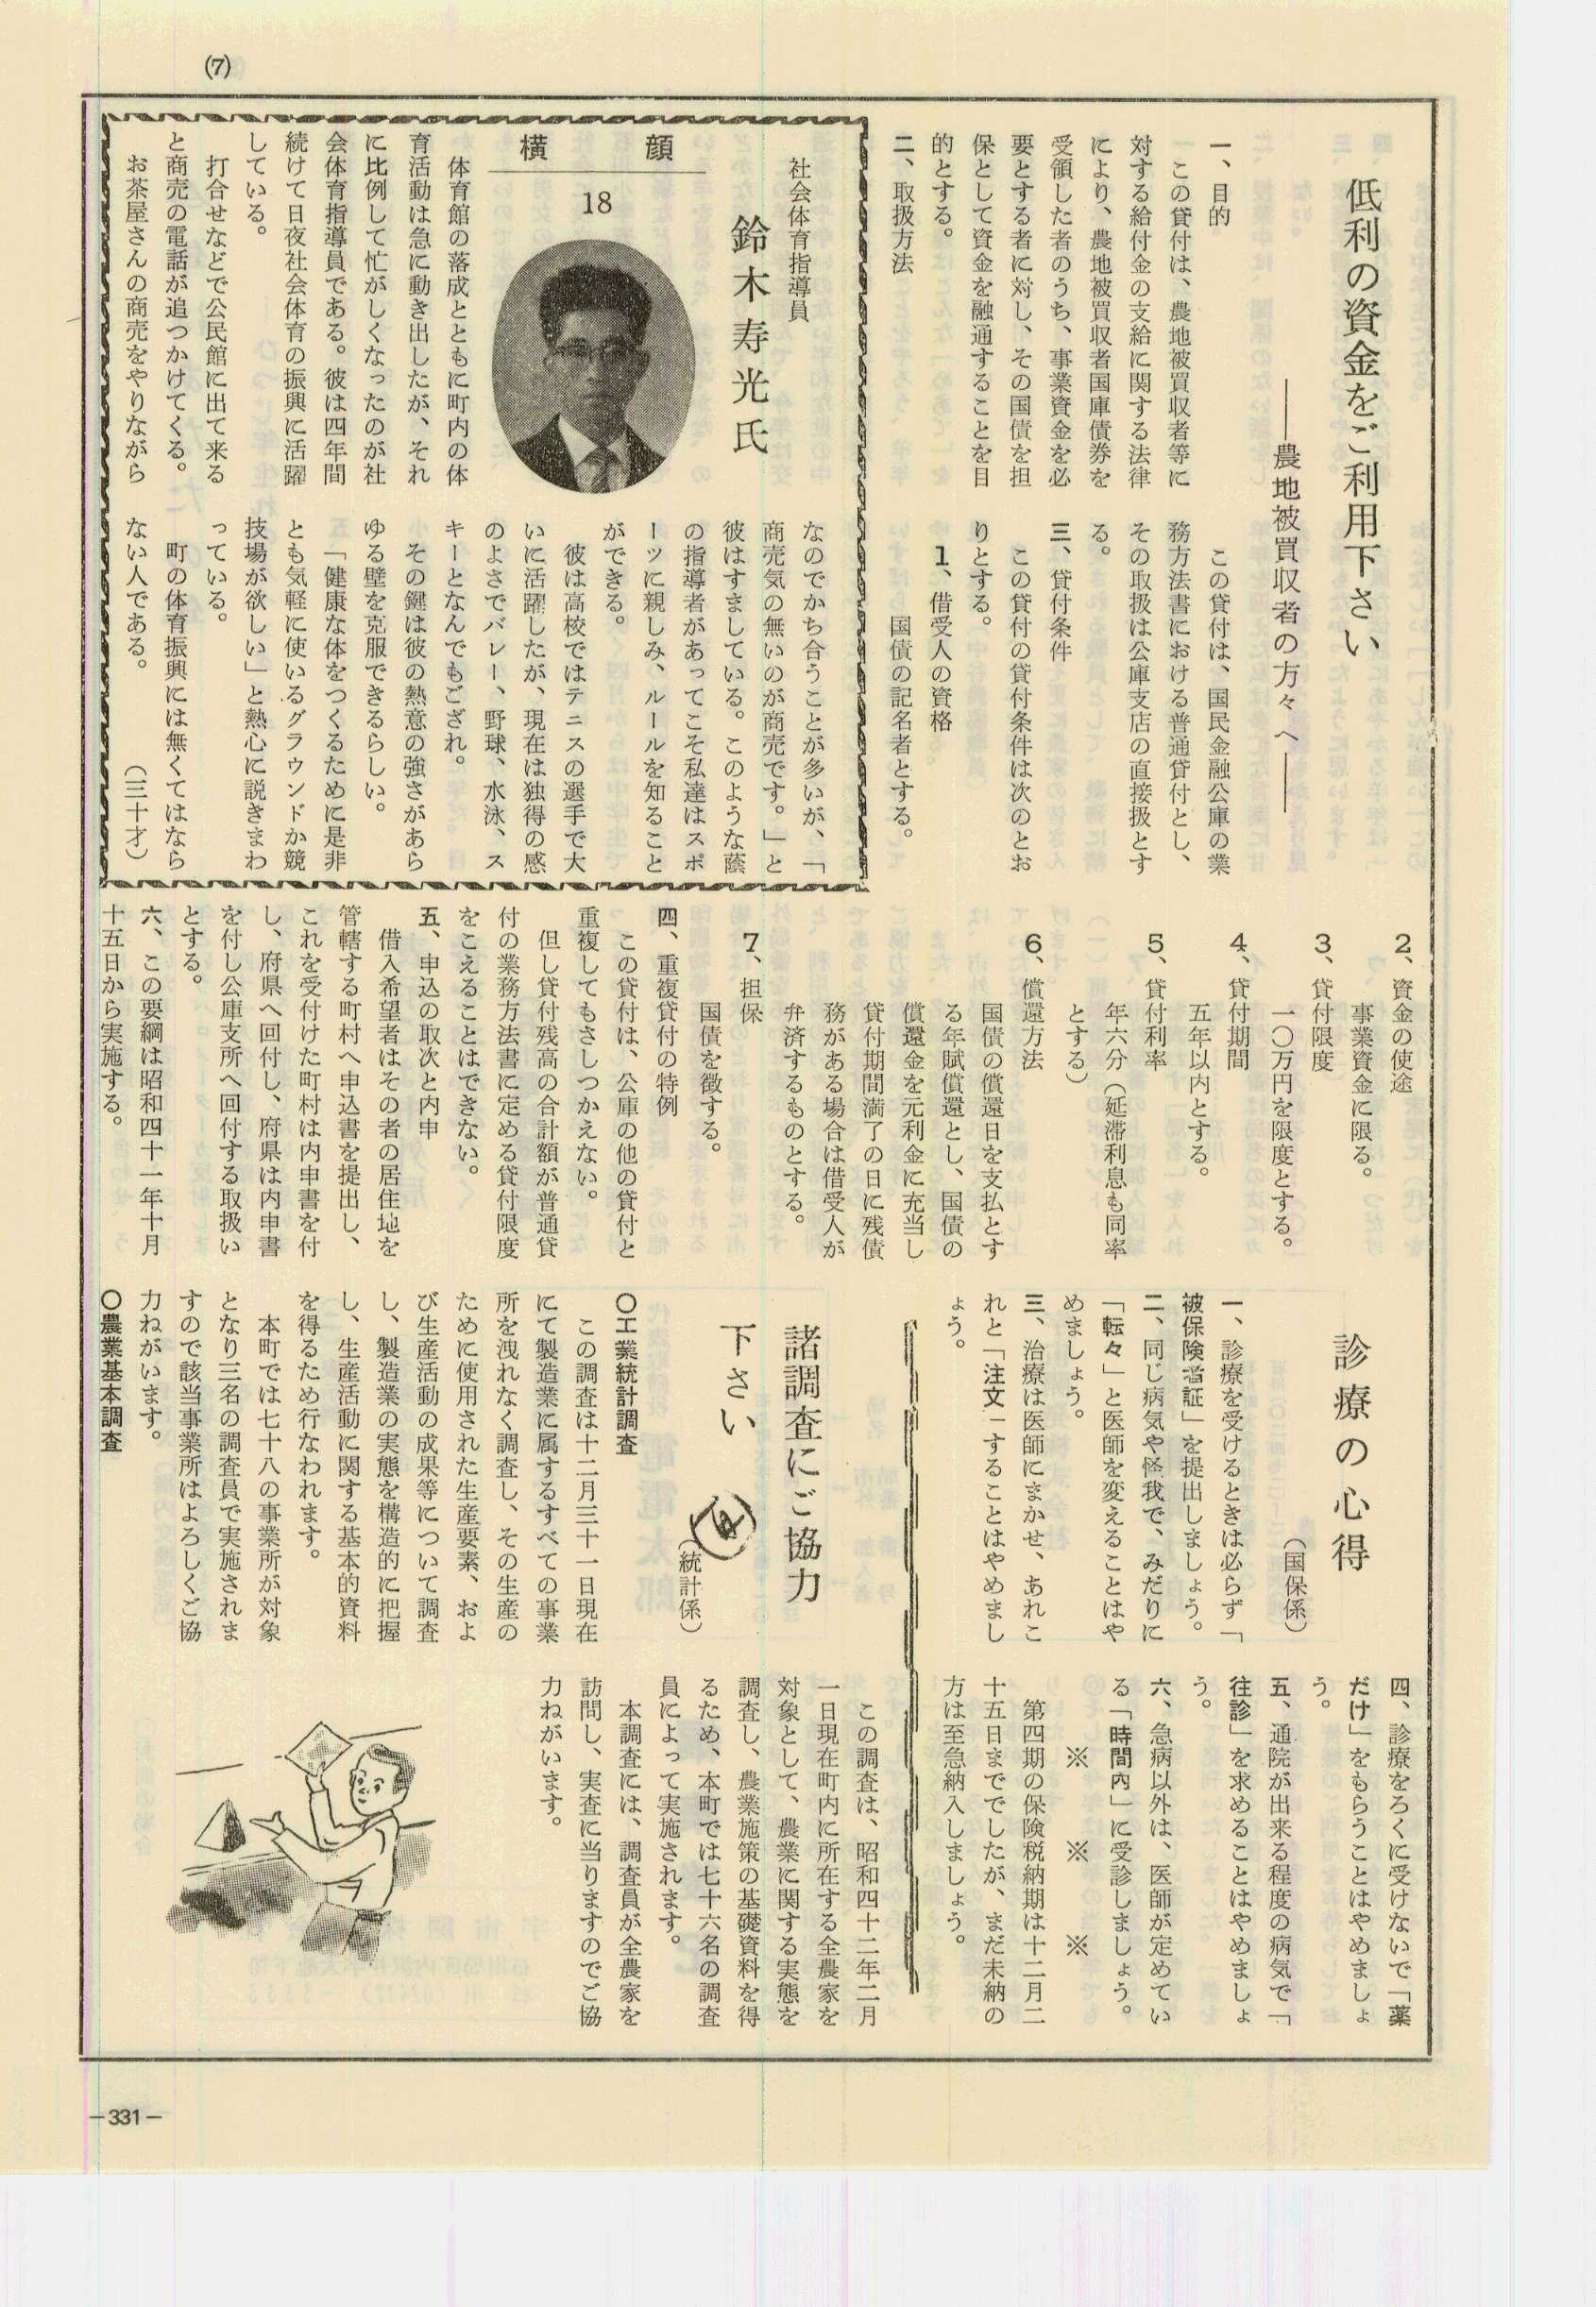 (7)
低利の資金をご利用下さい
――農地被買収者の方々へ――
一、目的
この貸付は、農地被買収者等に
対する給付金の支給に関する法律
により、農地被買収者国庫債券を
受領した者のうち、事業資金を必
要とする者に対し、その国債を担
保として資金を融通することを目
的とする。
二、取扱方法
この貸付は、国民金融公庫の業
務方法書における普通貸付とし、
その取扱は公庫支店の直接扱とす
る。
三、貸付条件
この貸付の貸付条件は次のとお
りとする。
1、借受人の資格
国債の記名者とする。
2、資金の使途
事業資金に限る。
3、貸付限度
一〇万円を限度とする。
4、貸付期間
五年以内とする。
5、貸付利率
年六分(延滞利息も同率
とする)
6、償還方法
国債の償還日を支払とす
る年賦償還とし、国債の
償還金を元利金に充当し
貸付期間満了の日に残債
務がある場合は借受人が
弁済するものとする。
7、担保
国債を徴する。
四、重複貸付の特例
この貸付は、公庫の他の貸付と
重複してもさしつかえない。
但し貸付残高の合計額が普通貸
付の業務方法書に定める貸付限度
をこえることはできない。
五、申込の取次と内申
借入希望者はその者の居住地を
管轄する町村へ申込書を提出し、
これを受付けた町村は内申書を付
し、府県へ回付し、府県は内申書
を付し公庫支所へ回付する取扱い
とする。
六、この要綱は昭和四十一年十月
十五日から実施する。
横顔
18
社会体育指導員
鈴木寿光氏
体育館の落成とともに町内の体
育活動は急に動き出したが、それ
に比例して忙がしくなったのが社
会体育指導員である。彼は四年間
続けて日夜社会体育の振興に活躍
している。
打合せなどで公民館に出て来る
と商売の電話が追つかけてくる。
お茶屋さんの商売をやりながら
なのでかち合うことが多いが、「
商売気の無いのが商売です。」と
彼はすましている。このような蔭
の指導者があってこそ私達はスポ
ーツに親しみ、ルールを知ること
ができる。
彼は高校ではテニスの選手で大
いに活躍したが、現在は独得の感
のよさでバレー、野球、水泳、ス
キーとなんでもござれ。
その鍵は彼の熱意の強さがあら
ゆる壁を克服できるらしい。
「健康な体をつくるために是非
とも気軽に使いるグラウンドか競
技場が欲しい」と熱心に説きまわ
っている。
町の体育振興には無くてはなら
ない人である。
(三十才)
診療の心得
(国保係)
一、診療を受けるときは必らず「
被保険者証」を提出しましょう。
二、同じ病気や怪我で、みだりに
「転々」と医師を変えることはや
めましょう。
三、治療は医師にまかせ、あれこ
れと「注文」することはやめまし
ょう。
四、診療をろくに受けないで「薬
だけ」をもらうことはやめましょ
う。
五、通院が出来る程度の病気で「
往診」を求めることはやめましょ
う。
六、急病以外は、医師が定めてい
る「時間内」に受診しましょう。
※ ※ ※
第四期の保険税納期は十二月二
十五日まででしたが、まだ未納の
方は至急納入しましょう。
諸調査にご協力
下さい
(統計係)
〇工業統計調査
この調査は十二月三十一日現在
にて製造業に属するすべての事業
所を洩れなく調査し、その生産の
ために使用された生産要素、およ
び生産活動の成果等について調査
し、製造業の実態を構造的に把握
し、生産活動に関する基本的資料
を得るため行なわれます。
本町では七十八の事業所が対象
となり三名の調査員で実施されま
すので該当事業所はよろしくご協
力ねがいます。
〇農業基本調査
この調査は、昭和四十二年二月
一日現在町内に所在する全農家を
対象として、農業に関する実態を
調査し、農業施策の基礎資料を得
るため、本町では七十六名の調査
員によって実施されます。
本調査には、調査員が全農家を
訪問し、実査に当りますのでご協
力ねがいます。
－331－